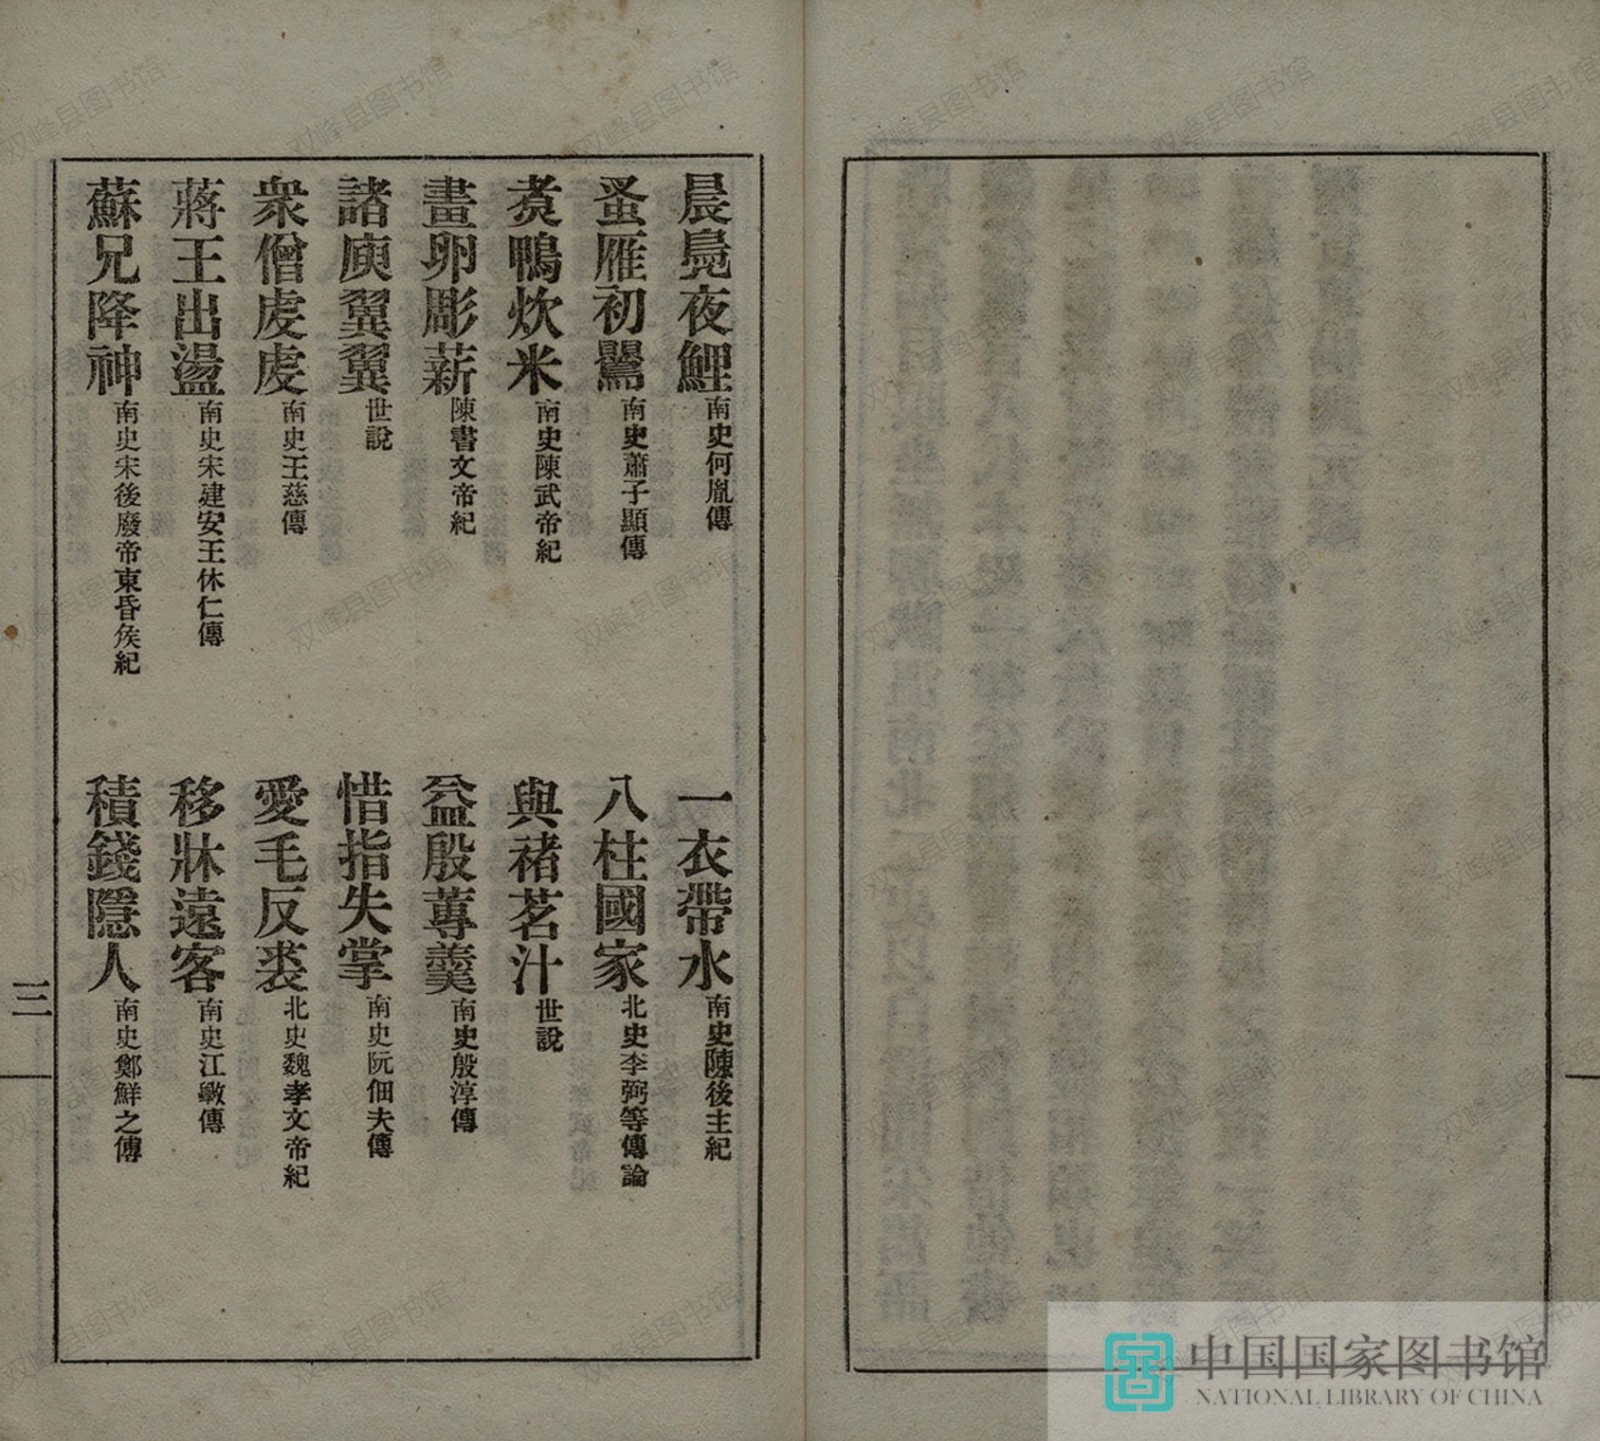 晨鳧夜鯉南史何胤傳
一衣帶水南史陳後主紀
蚤雁初鸎南史蕭子顯傳
八柱國家北史李弼等傳論
煑鴨炊米南史陳武帝紀
與褚茗汁世說
畫卵彫薪陳書文帝紀
益殷蓴羹南史殷淳傳
諸庾翼翼世說
惜指失掌南史阮佃夫傳
衆僧虔虔南史王慈傳
愛毛反裘北史魏孝文帝紀
蔣王出盪南史宋建安王休仁傳
移牀遠客南史江斆傳
蘇兄降神南史宋後廢帝東昏矦紀
積錢隱人南史鄭鮮之傳
三
中国国家图书馆
NATIONAL LIBRARY OF CHINA
双峰县图书馆